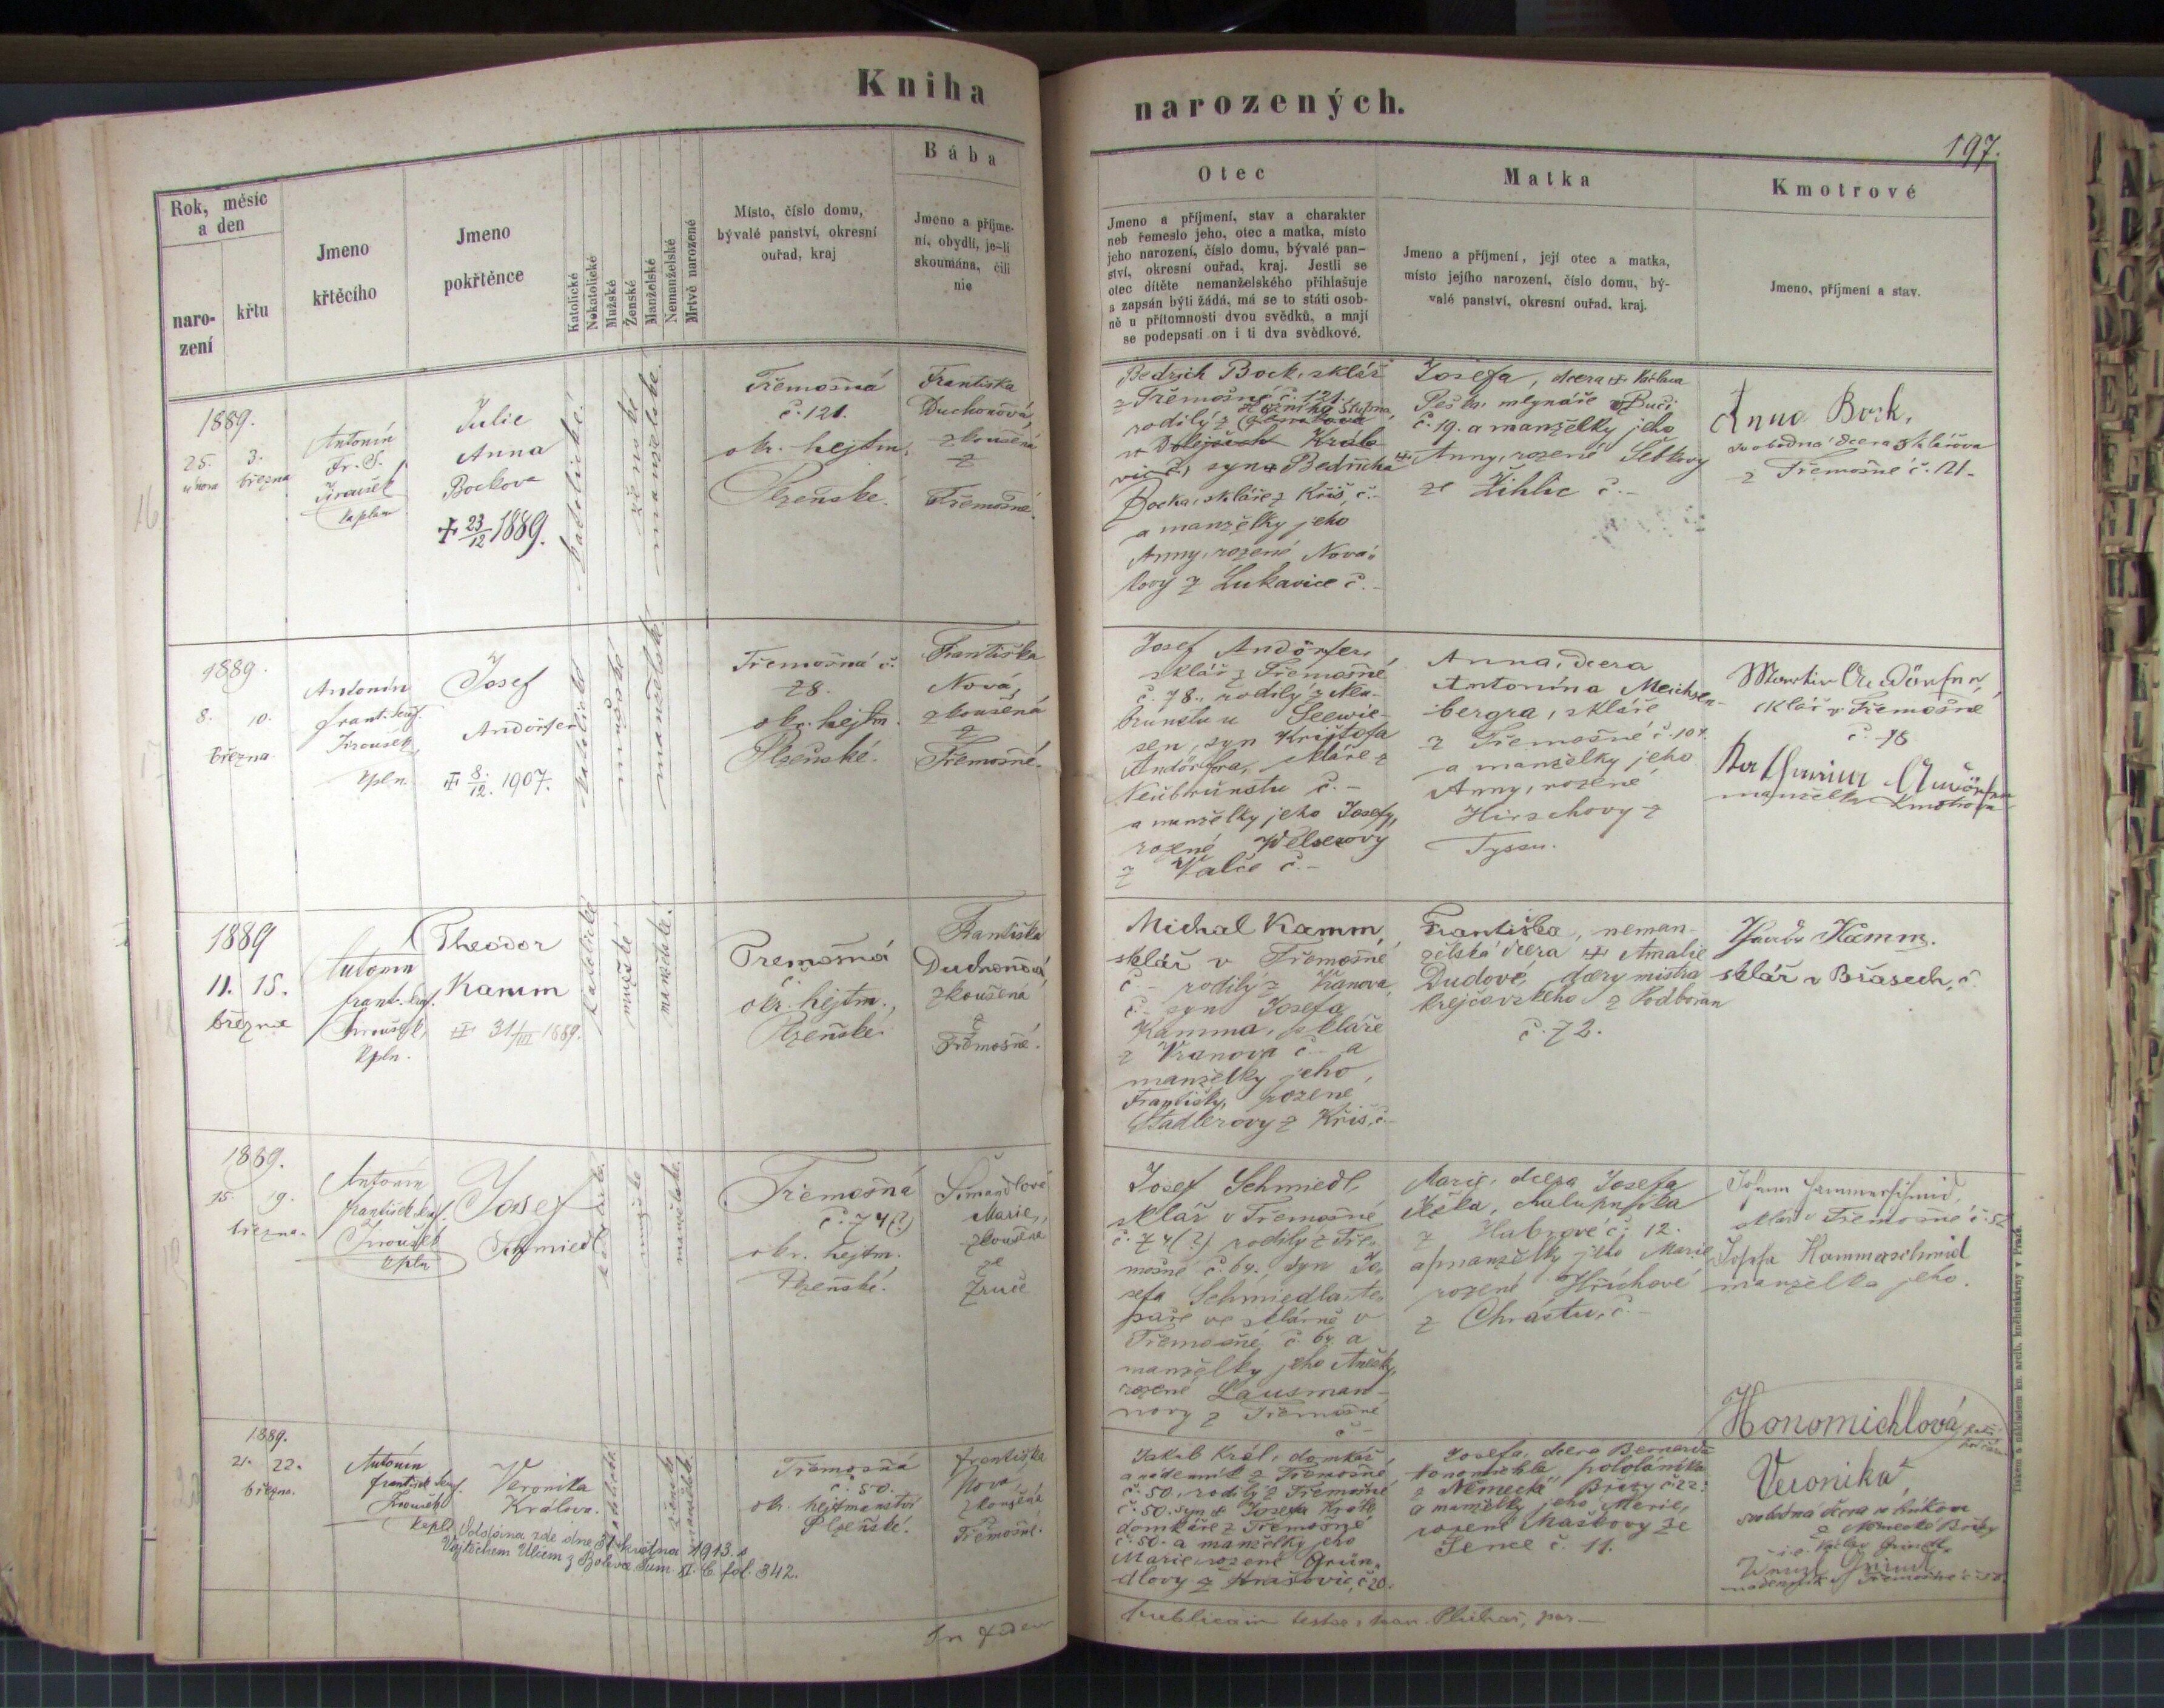 Kniha
narozených.
197.
Rok, měsíc
a den
naro-
zení
křtu
Jmeno
křtěcího
Jmeno
pokřtěnce
Katolické
Nekatolické
Mužské
Ženské
Manželské
Nemanželské
Mrtvě narozené
Místo, číslo domu,
bývalé panství, okresní
ouřad, kraj
Bába
Jmeno a příjme-
ní, obydlí, je-li
skoumána, čili
nic
Otec
Jmeno a příjmení, stav a charakter
neb řemeslo jeho, otec a matka, místo
jeho narození, číslo domu, bývalé pan-
ství, okresní ouřad, kraj. Jestli se
otec dítěte nemanželského přihlašuje
a zapsán býti žádá, má se to státi osob-
ně u přítomnosti dvou svědků, a mají
se podepsati on i ti dva svědkové.
Matka
Jmeno a příjmení, její otec a matka,
místo jejího narození, číslo domu, bý-
valé panství, okresní ouřad, kraj.
Kmotrové
Jmeno, příjmení a stav.
1889.
25. 3.
února března
Antonín
Fr. S.
Jiroušek
kaplan
Julie
Anna
Bockova
✝ 23/12 1889.
katolické.
ženské
manželské.
Třemošná
č. 121.
okr. hejtm.
Plzeňské.
Františka
Duchoňová,
zkoušená
z
Třemošné.
Bedřich Bock, sklář
z Třemošné č. 121.
rodilý z
syn Bedřicha
Bocka, skláře z Kříš, č. -
a manželky jeho
Anny, rozené Nová-
kovy z Lukavice č. -
Josefa, dcera ✝ Václava
mlynáře
č. 19. a manželky jeho
✝ Anny, rozené
ze Žihlic č. -
Anna Bock,
svobodná dcera sklářova
z Třemošné č. 121.
1889.
8. 10.
března
Antonín
frant. Seraf.
Jiroušek,
kpln.
Josef
Andörfer
✝ 8./12. 1907.
katolické
mužské
manželské
Třemošná č.
78.
okr. hejtm.
Plzeňské.
Františka
Nová,
zkoušená
z
Třemošné.
Josef Andörfer,
sklář z Třemošné
č. 78., rodilý z Neu-
brunstu u Seewie-
sen, syn Krištofa
Andörfera, skláře z
Neubrunstu č. -
a manželky jeho Josefy,
rozené Welserovy
z Valče č. -
Anna, dcera
Antonína Meichsn-
bergra, skláře
z Třemošné č. 107.
a manželky jeho
Anny, rozené
Hirschovy z
Tyssu.
Martin Andörfer,
sklář v Třemošné
č. 78
Katharina Andörfer
manželka kmotrova
1889
11. 15.
března
Antonín
frant. Seraf.
Jiroušek,
kpln.
Theodor
Kamm
✝ 31/III 1889.
katolické
mužské
manželské.
Třemošná
č.
okr. hejtm.,
Plzeňské.
Františka
Duchoňová,
zkoušená
z
Třemošné.
Michal Kamm,
sklář v Třemošné
č. - rodilý z Vranova,
č. - syn Josefa
Kamma, skláře
z Vranova č. - a
manželky jeho,
Františky, rozené
Stadlerovy z Kříš, č. -
Františka, neman-
želská dcera ✝ Amalie
Dudové, dcery mistra
krejčovského z Podbořan
č. 72.
Kamm.
sklář v Břasech, č.
1889.
15. 19.
března.
Antonín
František Seraf.
Jiroušek
kpln
Josef
Schmiedl
katolické
mužské
manželské.
Třemošná
č. 74 (?)
okr. hejtm.
Plzeňské.
Šimandlová
Marie,
zkoušená
ze
Zruče
Josef Schmiedl,
sklář v Třemošné
č. 74 (?) rodilý z Tře-
mošné č. 64. syn Jo-
sefa Schmiedla, to-
piče ve sklárně v
Třemošné č. 64 a
manželky jeho Anežky,
rozené Lausman-
novy z Třemošné
č. -
Marie, dcera Josefa
chalupníka
z Habrové č. 12.
a manželky jeho Marie
rozené Hříchové
z Chrástu, č. -
Johann Hammerschmid,
sklář v Třemošné č. 52
Josefa Hammerschmid
manželka jeho.
1889.
21. 22.
března.
Antonín
František Seraf.
Jiroušek
kapl.
Veronika
Králova.
katolická
ženské
manželské
Třemošná
č. 50.
okr. hejtmanství
Plzeňské.
Františka
Nová,
zkoušená
z
Třemošné.
Oddána zde dne 31. května 1913. s
Vojtěchem Ulčem z Bolevce Tum II. C. fol. 342.
Jakub Král, domkář
a nádenník z Třemošné,
č. 50., rodilý z Třemošné
č. 50. syn ✝ Josefa Krále
domkáře z Třemošné
č. 50. a manželky jeho
Marie, rozené Grün-
dlovy z Hnišovic, č 20.
Josefa, dcera Bernarda
Honomichla, pololáníka
z Německé Břízy č 22.
a manželky jeho Marie,
rozené Maškovy ze
Senec č. 11.
Honomichlová
Veronika,
svobodná dcera
z Německé Břízy
i.e. Václav Grindl
Wenzl Grindl
nádenník v Třemošné č 50.
In fidem
publicam testor: